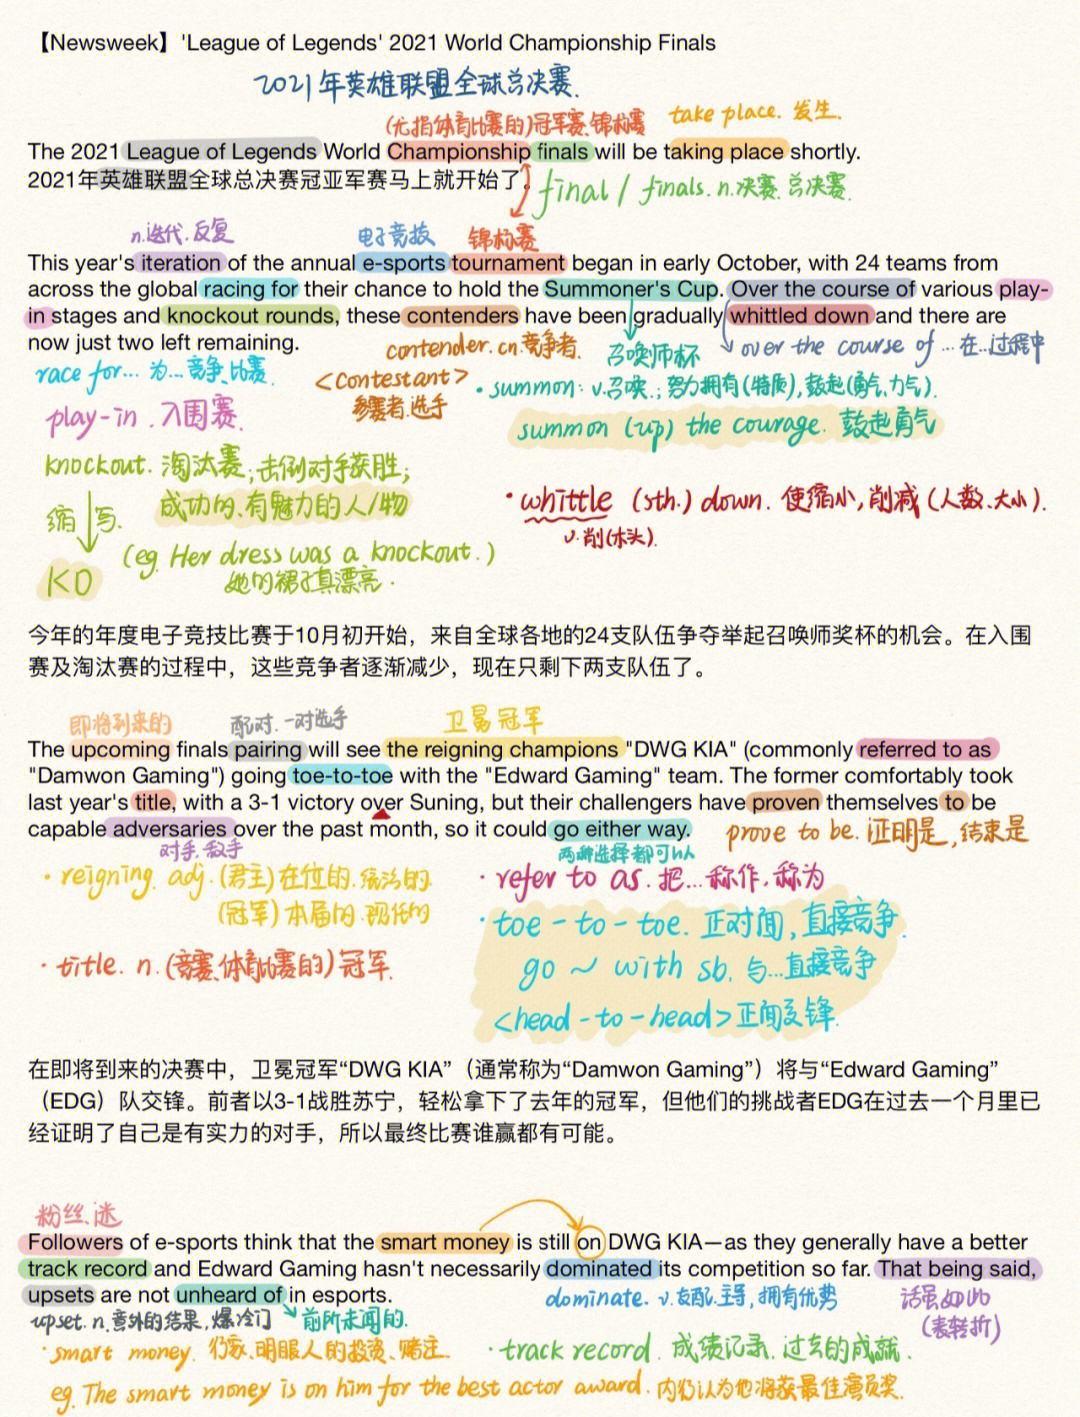 【Newsweek】'League of Legends' 2021 World Championship Finals
2021年英雄联盟全球总决赛.
(尤指体育比赛的)冠军赛.锦标赛 take place. 发生.
The 2021 League of Legends World Championship finals will be taking place shortly.
2021年英雄联盟全球总决赛冠亚军赛马上就开始了。
final / finals. n.决赛.总决赛.
n.迭代.反复 电子竞技 锦标赛
This year's iteration of the annual e-sports tournament began in early October, with 24 teams from
across the global racing for their chance to hold the Summoner's Cup. Over the course of various play-
in stages and knockout rounds, these contenders have been gradually whittled down and there are
now just two left remaining.
contender. cn.竞争者. 召唤师杯 over the course of … 在…过程中
race for… 为…竞争、比赛.
<contestant> 参赛者.选手
· summon: v.召唤.; 努力拥有(特质),鼓起(勇气、力气).
play-in . 入围赛.
summon (up) the courage. 鼓起勇气
knockout. 淘汰赛;击倒对手获胜;
成功的、有魅力的人/物
缩写.
· whittle (sth.) down. 使缩小,削减(人数、大小).
v.削(木头).
(eg. Her dress was a knockout.)
KO
她的裙子真漂亮.
今年的年度电子竞技比赛于10月初开始，来自全球各地的24支队伍争夺举起召唤师奖杯的机会。在入围
赛及淘汰赛的过程中，这些竞争者逐渐减少，现在只剩下两支队伍了。
即将到来的 配对.一对选手 卫冕冠军
The upcoming finals pairing will see the reigning champions "DWG KIA" (commonly referred to as
"Damwon Gaming") going toe-to-toe with the "Edward Gaming" team. The former comfortably took
last year's title, with a 3-1 victory over Suning, but their challengers have proven themselves to be
capable adversaries over the past month, so it could go either way.
prove to be. 证明是,结束是
对手.敌手 两种选择都可以
· reigning. adj.(君主)在位的.统治的.
(冠军)本届的.现任的
· refer to as. 把…称作.称为
· toe-to-toe. 正对面,直接竞争.
go ~ with sb. 与…直接竞争
· title. n.(竞赛、体育比赛的)冠军.
<head-to-head>正面交锋.
在即将到来的决赛中，卫冕冠军“DWG KIA”（通常称为“Damwon Gaming”）将与“Edward Gaming”
（EDG）队交锋。前者以3-1战胜苏宁，轻松拿下了去年的冠军，但他们的挑战者EDG在过去一个月里已
经证明了自己是有实力的对手，所以最终比赛谁赢都有可能。
粉丝.迷
Followers of e-sports think that the smart money is still on DWG KIA—as they generally have a better
track record and Edward Gaming hasn't necessarily dominated its competition so far. That being said,
upsets are not unheard of in esports.
dominate. v.支配.主导,拥有优势
话虽如此
(表转折)
upset. n.意外的结果,爆冷门 前所未闻的.
· smart money. 行家、明眼人的投资、赌注.
· track record. 成绩记录.过去的成就.
eg. The smart money is on him for the best actor award. 内行认为他将获最佳演员奖.